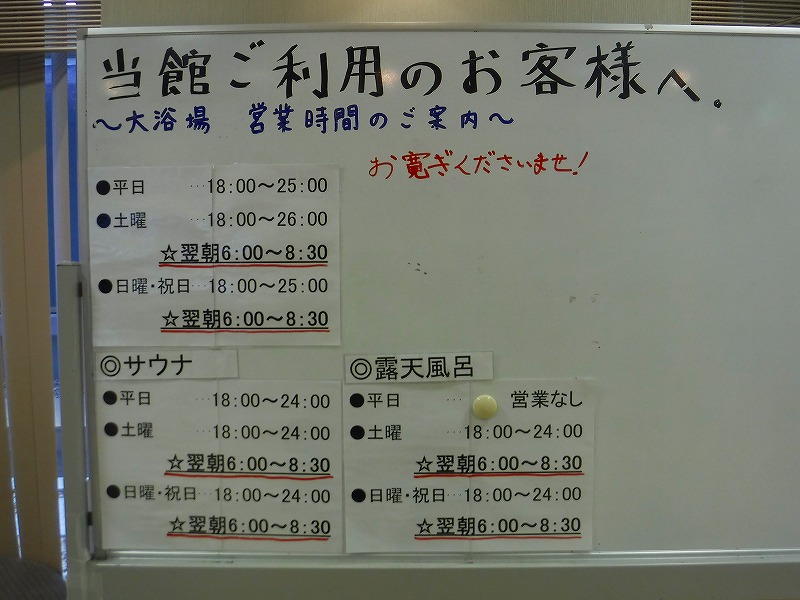 当館ご利用のお客様へ。
～大浴場 営業時間のご案内～
お寛ぎくださいませ!
●平日 …18:00～25:00
●土曜 …18:00～26:00
☆翌朝6:00～8:30
●日曜・祝日…18:00～25:00
☆翌朝6:00～8:30
◎サウナ
●平日 18:00～24:00
●土曜 18:00～24:00
☆翌朝6:00～8:30
●日曜・祝日…18:00～24:00
☆翌朝6:00～8:30
◎露天風呂
●平日 … 営業なし
●土曜 …18:00～24:00
☆翌朝6:00～8:30
●日曜・祝日…18:00～24:00
☆翌朝6:00～8:30